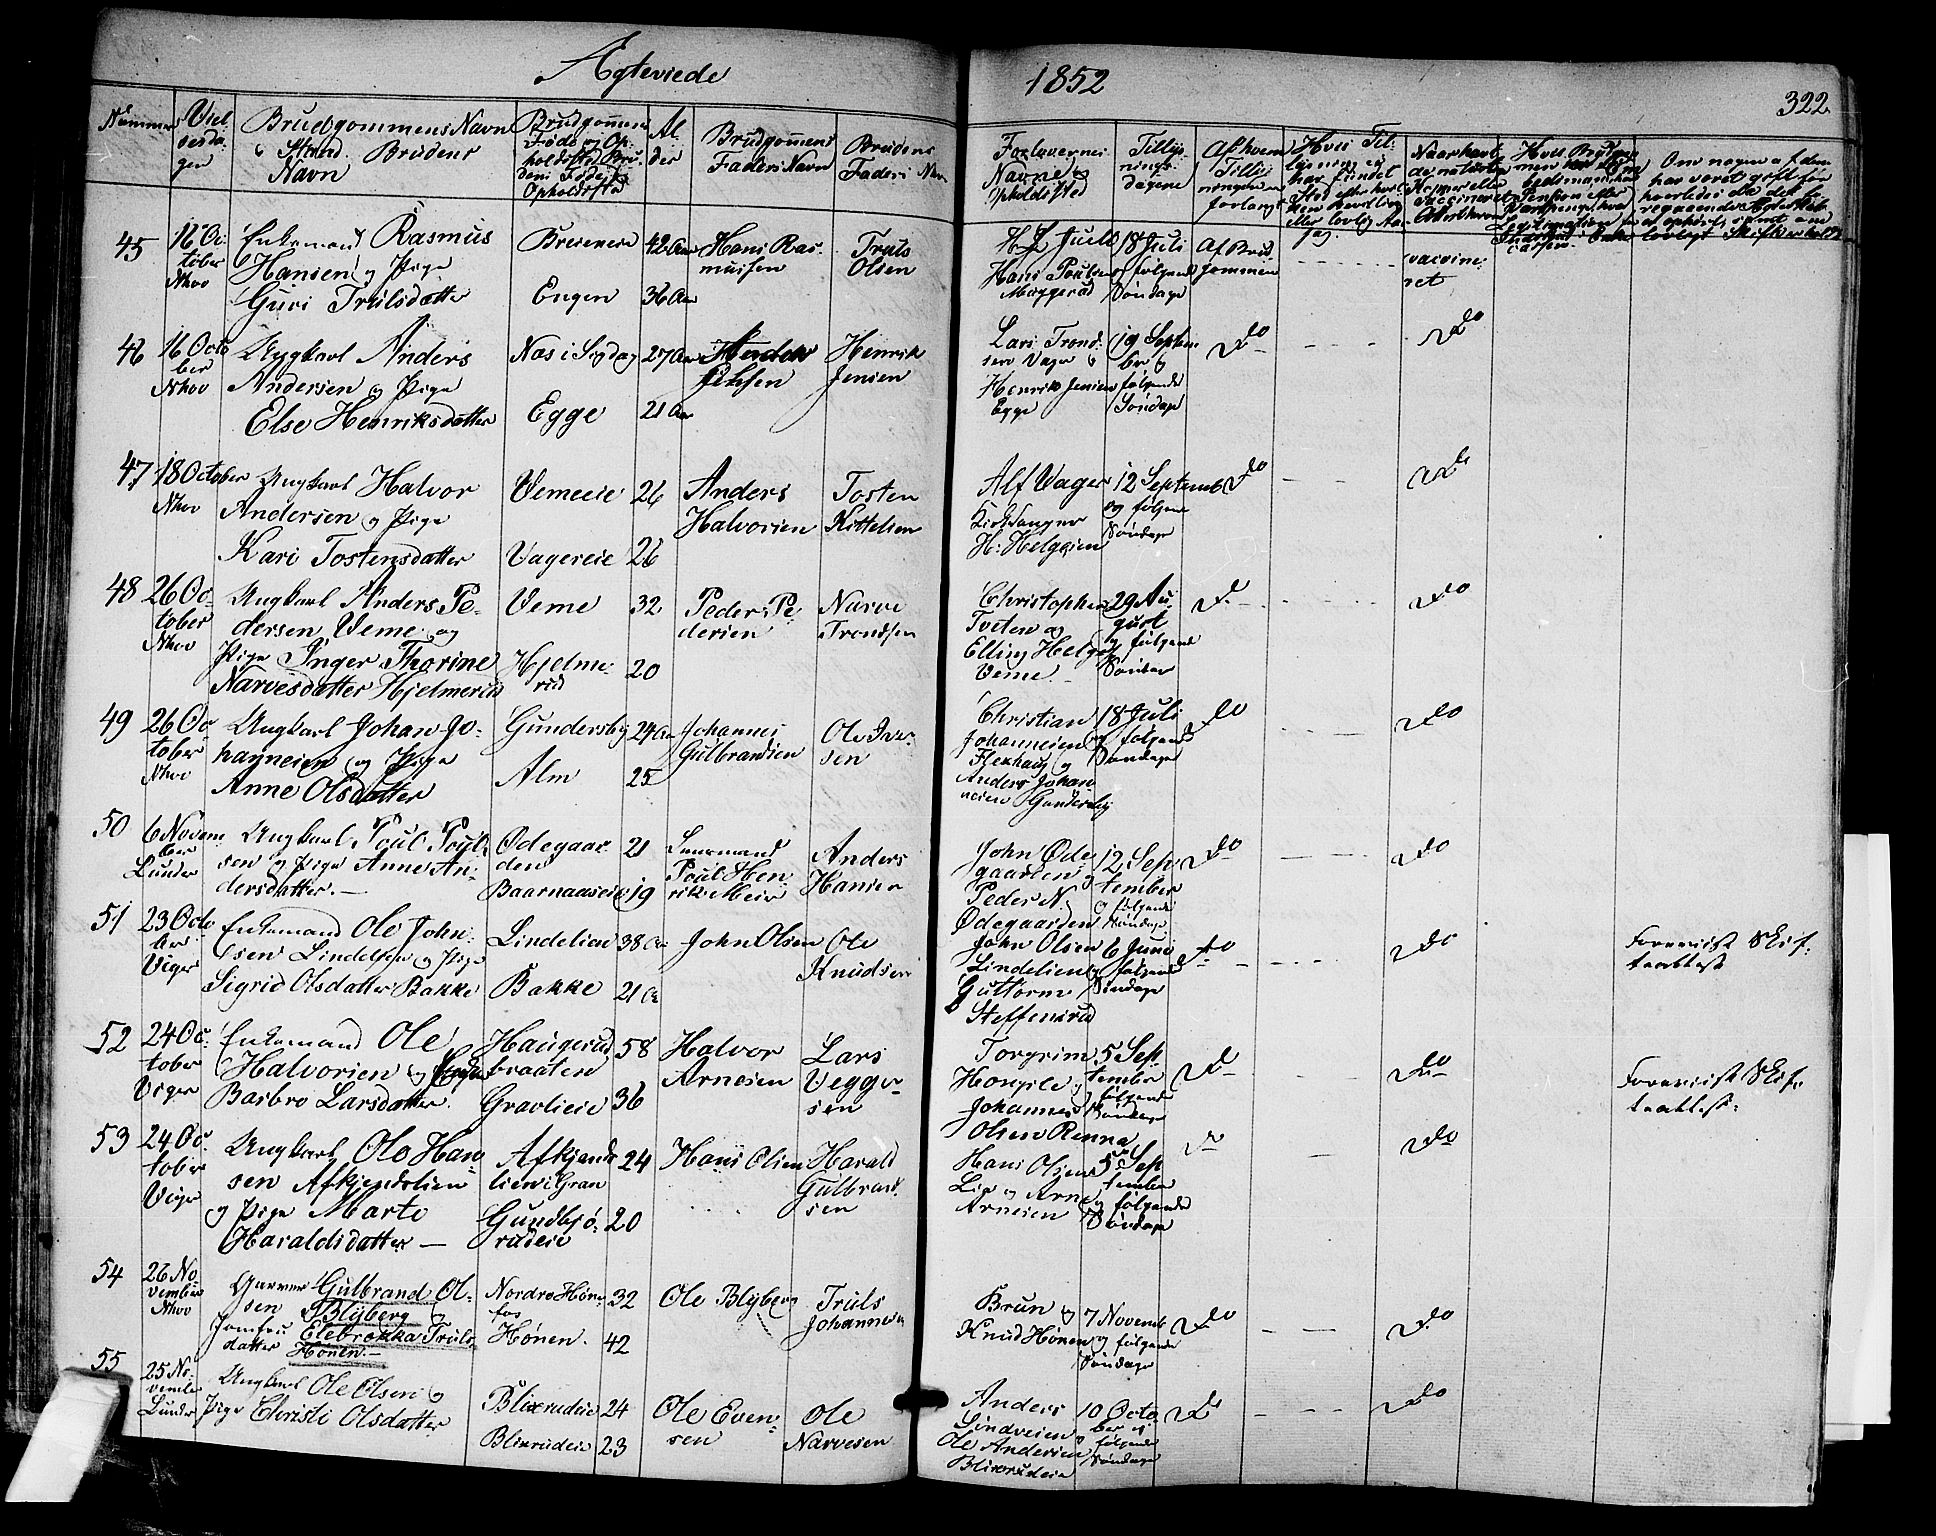 Ægteviede
1852
322
Nummer
Viel-
sesda-
gen
Brudgommens Navn
Stand
Brudens
Navn
Al-
der
Brudgomens
Faders Navn
Brudens
Faders Navn
Forlovernes
Navne og
Opholdssted
45
16 Oc-
tober
Nhov
Enkemand Rasmus
Hansen og Pige
Guri Trulsdatter
Engen
42 Aar
36 Aar
Hans Ras-
mussen
Truls
Olsen
Hans Poulsen
Maggerud
18 Juli
og følgende
Søndage
Af Brud-
gommen
vaccine-
ret
46
16 Octo
ber
Nhov
Ungkarl Anders
Andersen og Pige
Else Henriksdatter
Næs i Sigdal
Egge
27 Aar
21 Aar
Henrik
Jensen
Lars Trond-
sen Vager og
Henrik Jensen
Egge
19 Septem
ber og
følgende
Søndage
do
do
47
18 October
Nhov
Ungkarl Halvor
Andersen og Pige
Kari Tostensdatter
Vemeeie
Vagereie
26
26
Anders
Halvorsen
Tosten
Kittelsen
Alf Vager
Kirksanger
H: Helgesen
12 Septemb
og følgen
Søndage
do
do
48
26 Oc-
tober
Nhov
Ungkarl Anders Pe-
dersen Veme og
Pige Inger Thorine
Narvesdatter Hjelmerud
Veme
Hjelme-
rud
32
20
Peder Pe-
dersen
Narve
Trondsen
Christopher
Tveten og
Elling Helges
Veme
29 Au-
gust
og følgende
Søndage
do
do
49
26 Oc
tober
Nhov
Ungkarl Johan Jo-
hannesen og Pige
Anne Olsdatter
Gundersby
Alm
24 Aar
25
Johannes
Gulbrandsen
Ole Iver-
sen
Christian
Johannesen
Flexhaug og
Anders Johan
nesen Gundersby
18 Juli
og følgende
Søndage
do
do
50
6 Novem
ber
Lunder
Ungkarl Poul Poul-
sen og Pige Anne An-
dersdatter. —
Ødegaar-
den
Baarnaaseie
21
19
Poul Hen-
rik Meier
Anders
Hansen
John Øde-
gaarden og
Peder N.
Ødegaarden
12 Sep-
tember
og følgende
Søndage
do
do
51
23 Octo
ber
Viger
Enkemand Ole John-
sen Lindelien og Pige
Sigrid Olsdatter Bakke
Lindelien
Bakke
38 Aar
21 Aar
John Olsen
Ole
Knudsen
John Olsen
Lindelien og
Guttorm
Steffensrud
6 Juni
og følgende
Søndage
do
do
Foreviist Skif-
teattest
52
24 Oc-
tober
Viger
Enkemand Ole
Halvorsen og
Barbro Larsdatter.
Haugerud
braaten
Gravlieie
58
36
Halvor
Arnesen
Lars
Vegger-
sen
Torgrim
Honsele og
Johannes
Olsen Renna
5 Sep-
tember
og følgende
Søndage
do
do
Foreviist Skif-
teattest.
53
24 Oc
tober
Viger
Ungkarl Ole Han
sen Afkjendslien
og Pige Marte
Haraldsdatter —
Afkjends
lien i Gran
Gundbjø-
rudeie
24
20
Hans Olsen
Harald
Gulbrand
sen
Hans Olsen
Lie og Arne
Arnesen
5 Sep
tember
og følgende
Søndage
do
do
54
26 No
vember
Nhov
Garver Gulbrand Ol-
sen Blyberg og
Jomfru Elebrokka Truls-
datter Hønen. —
Nordre Høne-
fos
Hønen.
32
42
Ole Blyberg
Truls
Johannesen
Brun og
Knud Hønen
7 Novemb
og følgende
Søndage
do
do
55
25 No-
vember
Lunder
Ungkarl Ole Olsen og
Pige Christi Olsdatter
Blixrudeie
Blixrudeie
24
23
Ole Even-
sen
Ole
Narvesen
Anders
Lindveien og
Ole Andersen
Blixrudeie
10 Octo
ber og
følgende
Søndage
do
do